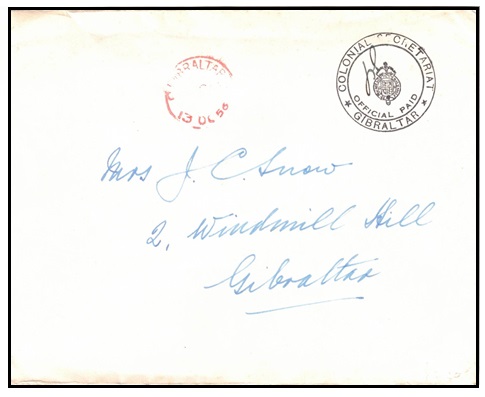 GIBRALTAR
13 OC 56
COLONIAL SECRETARIAT
OFFICIAL PAID
GIBRALTAR
Mrs J. C. Snow
2, Windmill Hill
Gibraltar